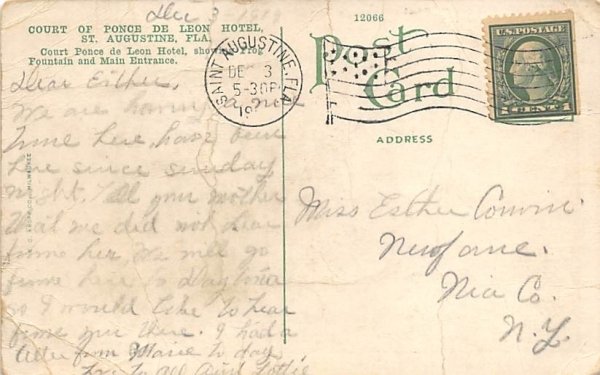 Dec 3
COURT OF PONCE DE LEON HOTEL,
ST. AUGUSTINE, FLA.
Court Ponce de Leon Hotel, showing Frog
Fountain and Main Entrance.
Dear Esther,
We are having a nice
time here, have been
here since sunday
night. Tell your mother
that we did not hear
from her, We will go
from here to Daytona
so I would like to hear
from you there. I had a
letter from Marie to day
Love to all Aunt Lottie
12066
Post
Card
SAINT AUGUSTINE, FLA.
DEC 3
5-30P
19
U.S. POSTAGE
1 CENT 1
ADDRESS
Miss Esther
Newfane.
Nia Co.
N.Y.